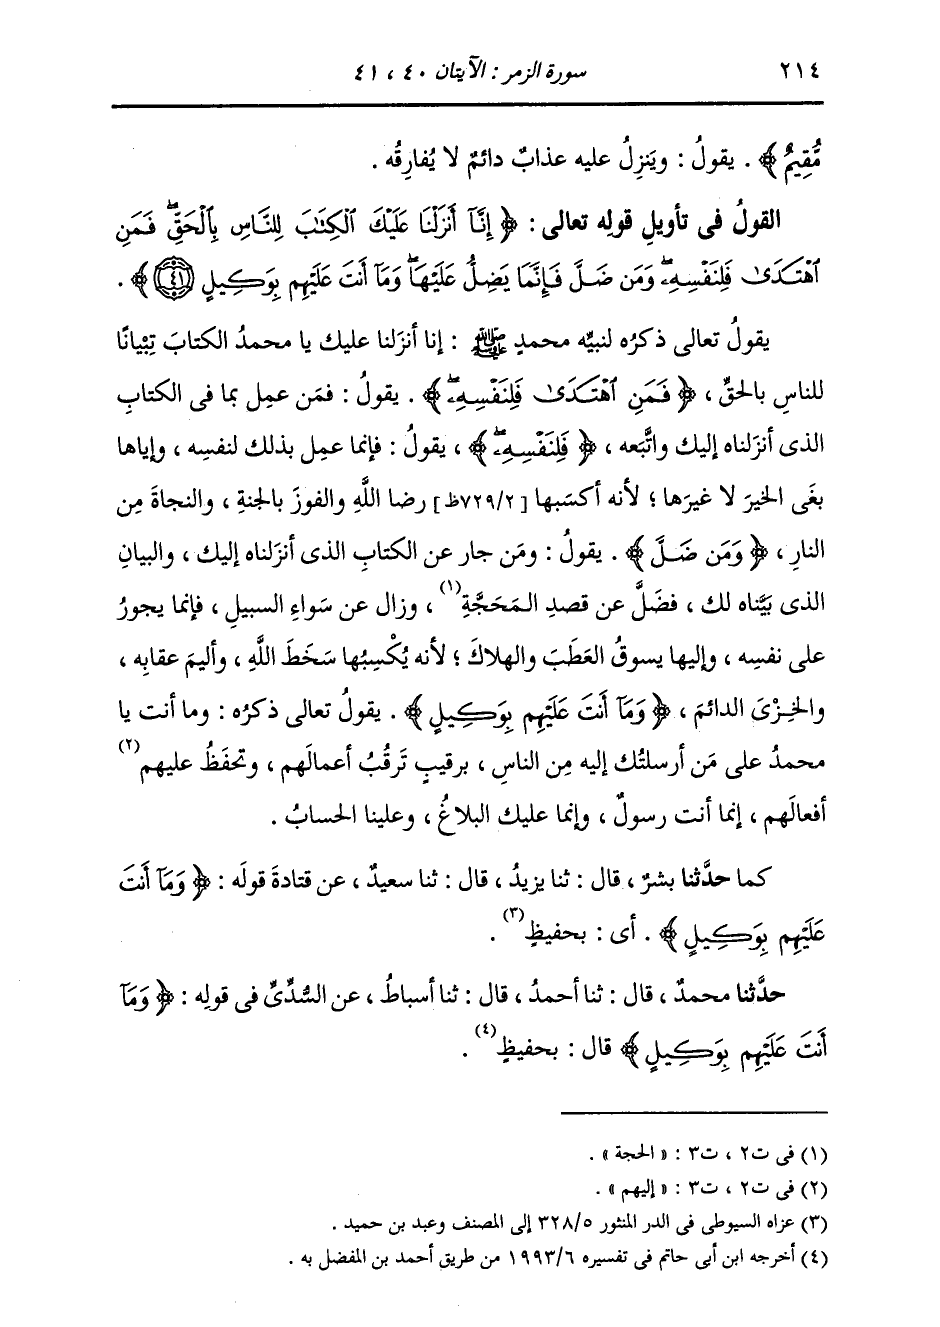 ٢١٤ سورة الزمر : الآيتان ٤٠ ، ٤١
مُّقِيمٌ ﴾ . يقولُ : ويَنزِلُ عليه عذابٌ دائمٌ لا يُفارِقُه .
القولُ فى تأويلِ قولِه تعالى : ﴿ إِنَّآ أَنزَلْنَا عَلَيْكَ ٱلْكِتَٰبَ لِلنَّاسِ بِٱلْحَقِّۖ فَمَنِ
ٱهْتَدَىٰ فَلِنَفْسِهِۦۖ وَمَن ضَلَّ فَإِنَّمَا يَضِلُّ عَلَيْهَاۖ وَمَآ أَنتَ عَلَيْهِم بِوَكِيلٍ (٤١) ﴾ .
يقولُ تعالى ذكرُه لنبيِّه محمدٍ ﷺ : إنا أنزَلنا عليك يا محمدُ الكتابَ تِبْيانًا
للناسِ بالحقِّ ، ﴿ فَمَنِ ٱهْتَدَىٰ فَلِنَفْسِهِۦۖ ﴾ . يقولُ : فمَن عمِل بما فى الكتابِ
الذى أنزَلناه إليك واتَّبَعه ، ﴿ فَلِنَفْسِهِۦۖ ﴾ ، يقولُ : فإنما عمِل بذلك لنفسِه ، وإياها
بغَى الخيرَ لا غيرَها ؛ لأنه أكسَبها [٧٢٩/٢ظ] رضا اللَّهِ والفوزَ بالجنةِ ، والنجاةَ مِن
النارِ ، ﴿ وَمَن ضَلَّ ﴾ . يقولُ : ومَن جار عن الكتابِ الذى أنزَلناه إليك ، والبيانِ
الذى بَيَّناه لك ، فضَلَّ عن قصدِ المَحَجَّةِ(١) ، وزال عن سَواءِ السبيلِ ، فإنما يجورُ
على نفسِه ، وإليها يسوقُ العَطَبَ والهلاكَ ؛ لأنه يُكْسِبُها سَخَطَ اللَّهِ ، وأليمَ عقابِه ،
والخِزْىَ الدائمَ ، ﴿ وَمَآ أَنتَ عَلَيْهِم بِوَكِيلٍ ﴾ . يقولُ تعالى ذكرُه : وما أنت يا
محمدُ على مَن أرسلتُك إليه مِن الناسِ ، برقيبٍ تَرقُبُ أعمالَهم ، وتحفَظُ عليهم(٢)
أفعالَهم ، إنما أنت رسولٌ ، وإنما عليك البلاغُ ، وعلينا الحسابُ .
كما حدَّثنا بشرٌ ، قال : ثنا يزيدُ ، قال : ثنا سعيدٌ ، عن قتادةَ قولَه : ﴿ وَمَآ أَنتَ
عَلَيْهِم بِوَكِيلٍ ﴾ . أى : بحفيظٍ(٣) .
حدَّثنا محمدٌ ، قال : ثنا أحمدُ ، قال : ثنا أسباطُ ، عن السُّدِّىِّ فى قولِه : ﴿ وَمَآ
أَنتَ عَلَيْهِم بِوَكِيلٍ ﴾ قال : بحفيظٍ(٤) .
(١) فى ت٢ ، ت٣ : « الحجة » .
(٢) فى ت٢ ، ت٣ : « إليهم » .
(٣) عزاه السيوطى فى الدر المنثور ٣٢٨/٥ إلى المصنف وعبد بن حميد .
(٤) أخرجه ابن أبى حاتم فى تفسيره ١٩٩٣/٦ من طريق أحمد بن المفضل به .